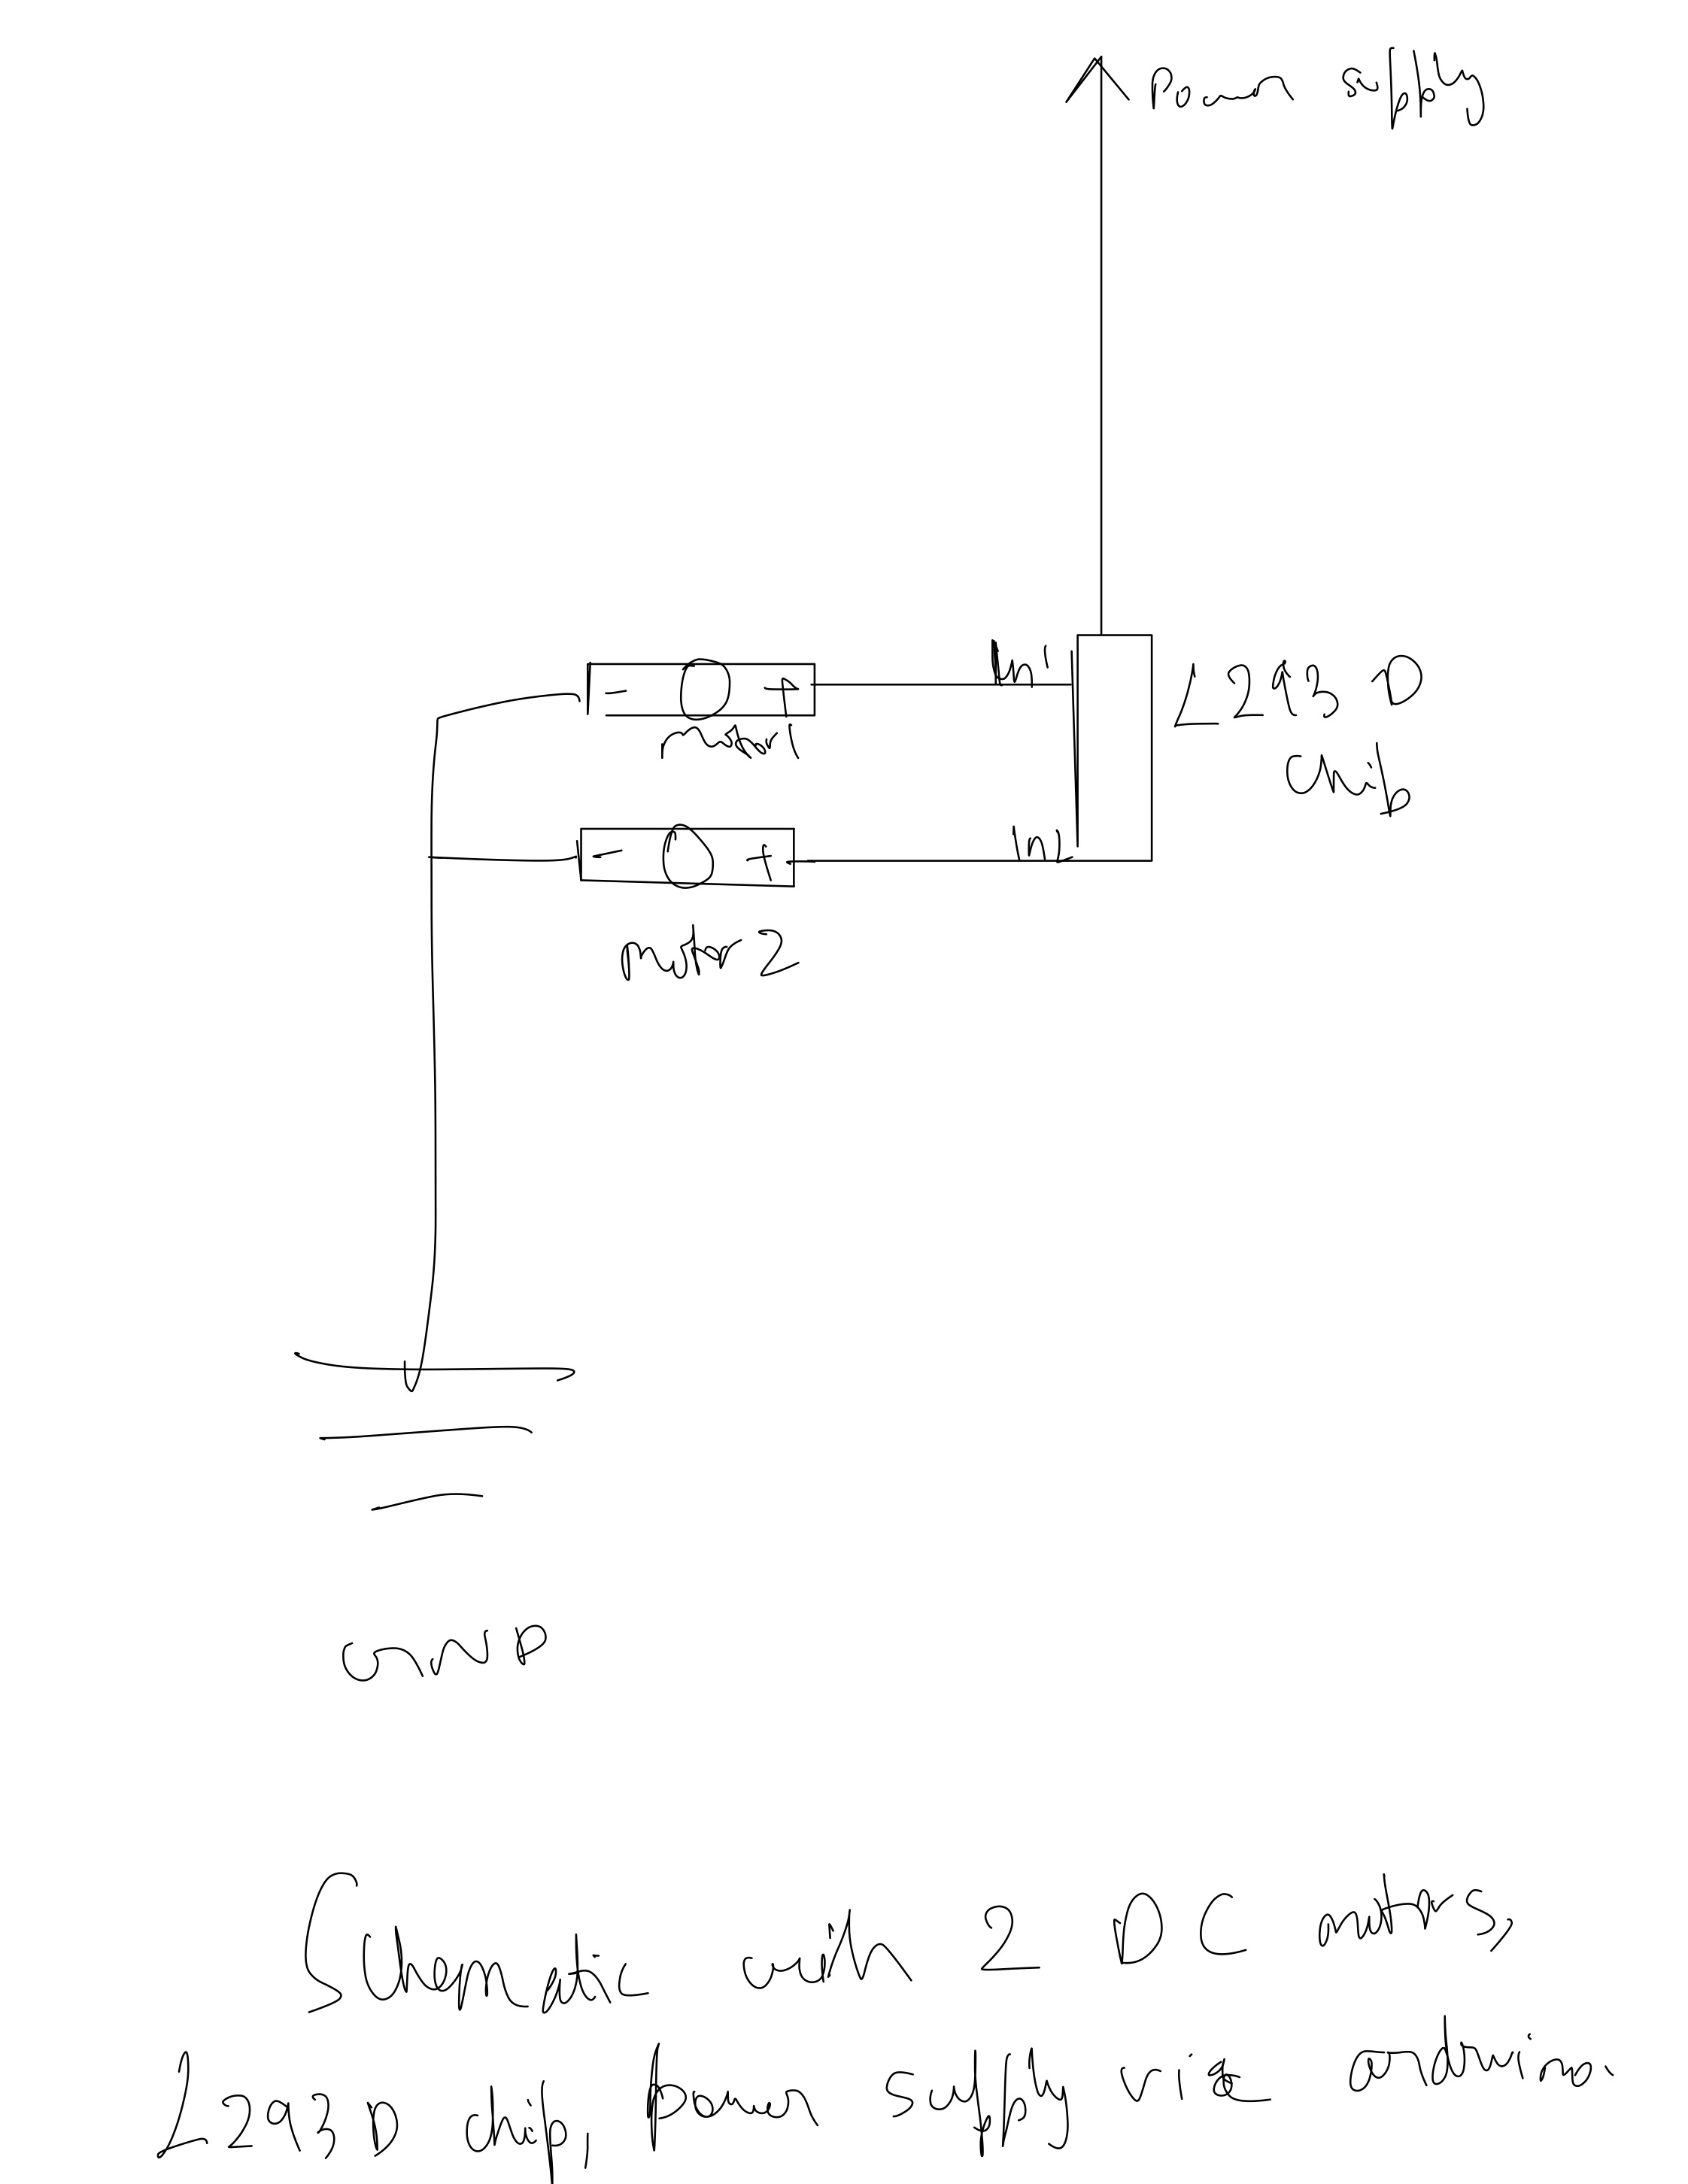 Power supply
- 0 + In 1
L293 D
motor 1
chip
- 0 + In2
motor 2
GND
Schematic with 2 DC motors,
L293D chip, power supply via arduino.